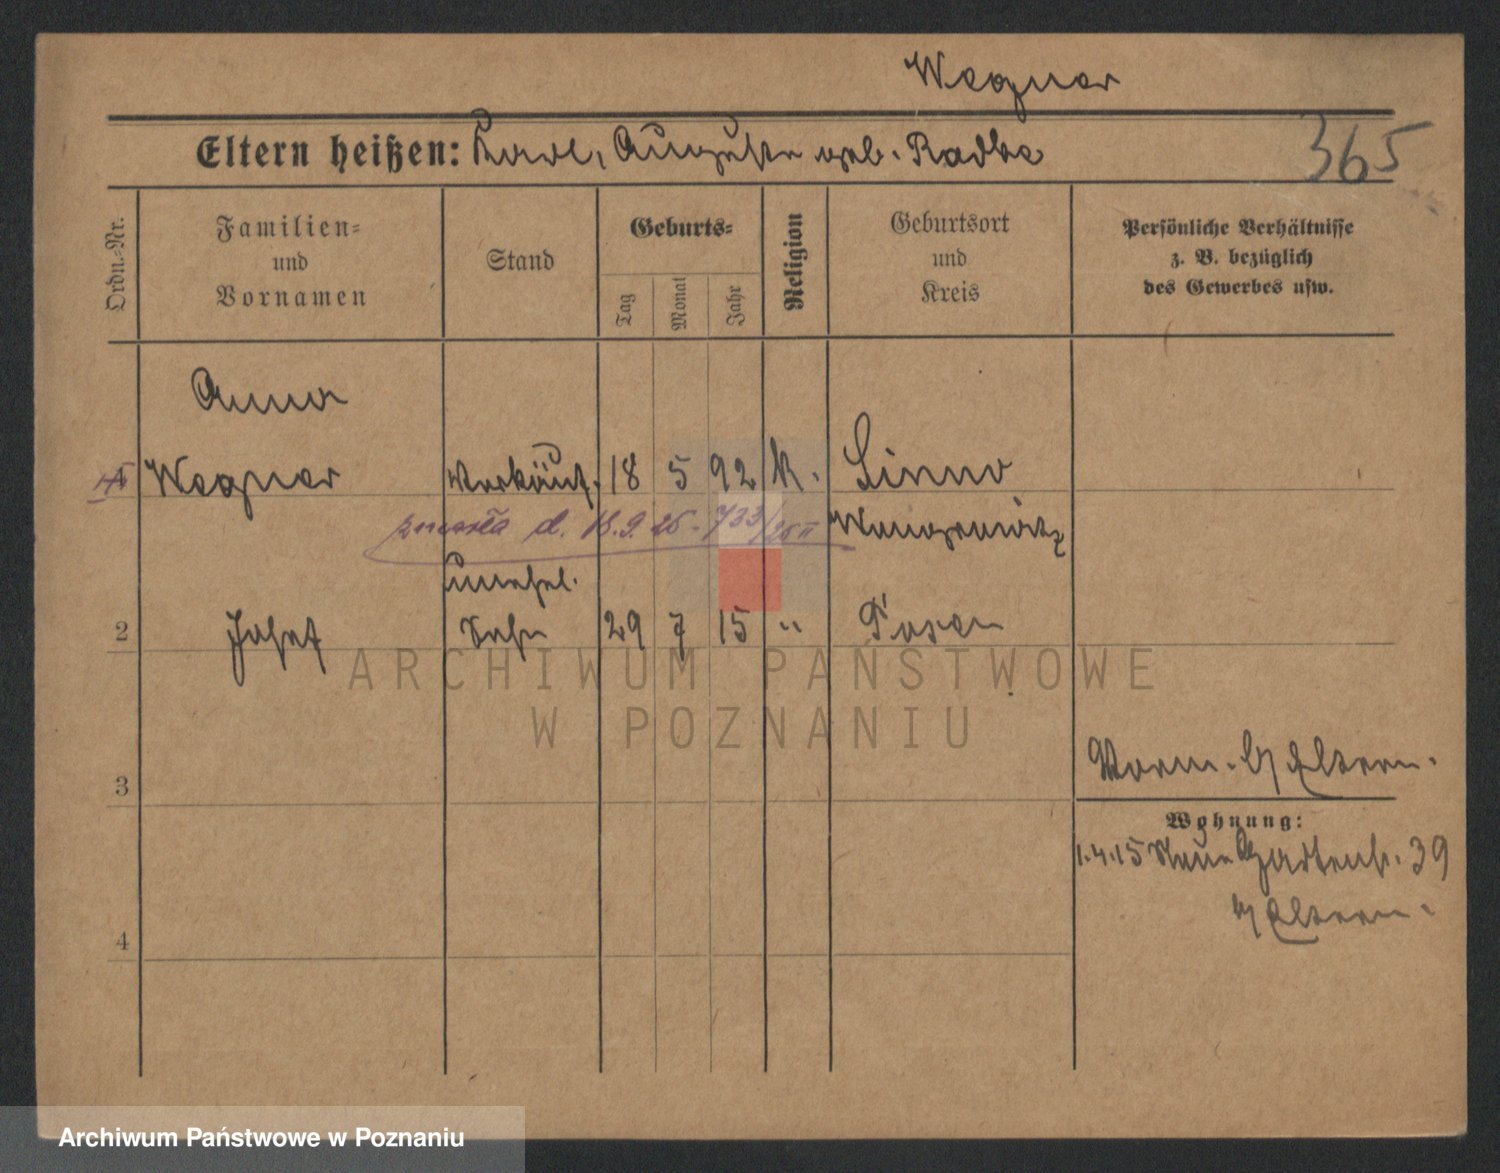 Wegner
Eltern heißen: Karl, Auguste geb. Radke
365
Ordn.-Nr.
Familien-
und
Vornamen
Stand
Geburts-
Tag
Monat
Jahr
Religion
Geburtsort
und
Kreis
Persönliche Verhältnisse
z. B. bezüglich
des Gewerbes usw.
Anna
Wegner Verkäuf. 18 5 92 K.
zmarła d. 18.9.25 - 733/25 II
unehel.
2 Josef Sohn 29 7 15 " Posen
ARCHIWUM PAŃSTWOWE
W POZNANIU
Vorm. b/ Eltern.
3
Wohnung:
1.4.15 Neue Gartenstr. 39
b/ Eltern.
4
Archiwum Państwowe w Poznaniu